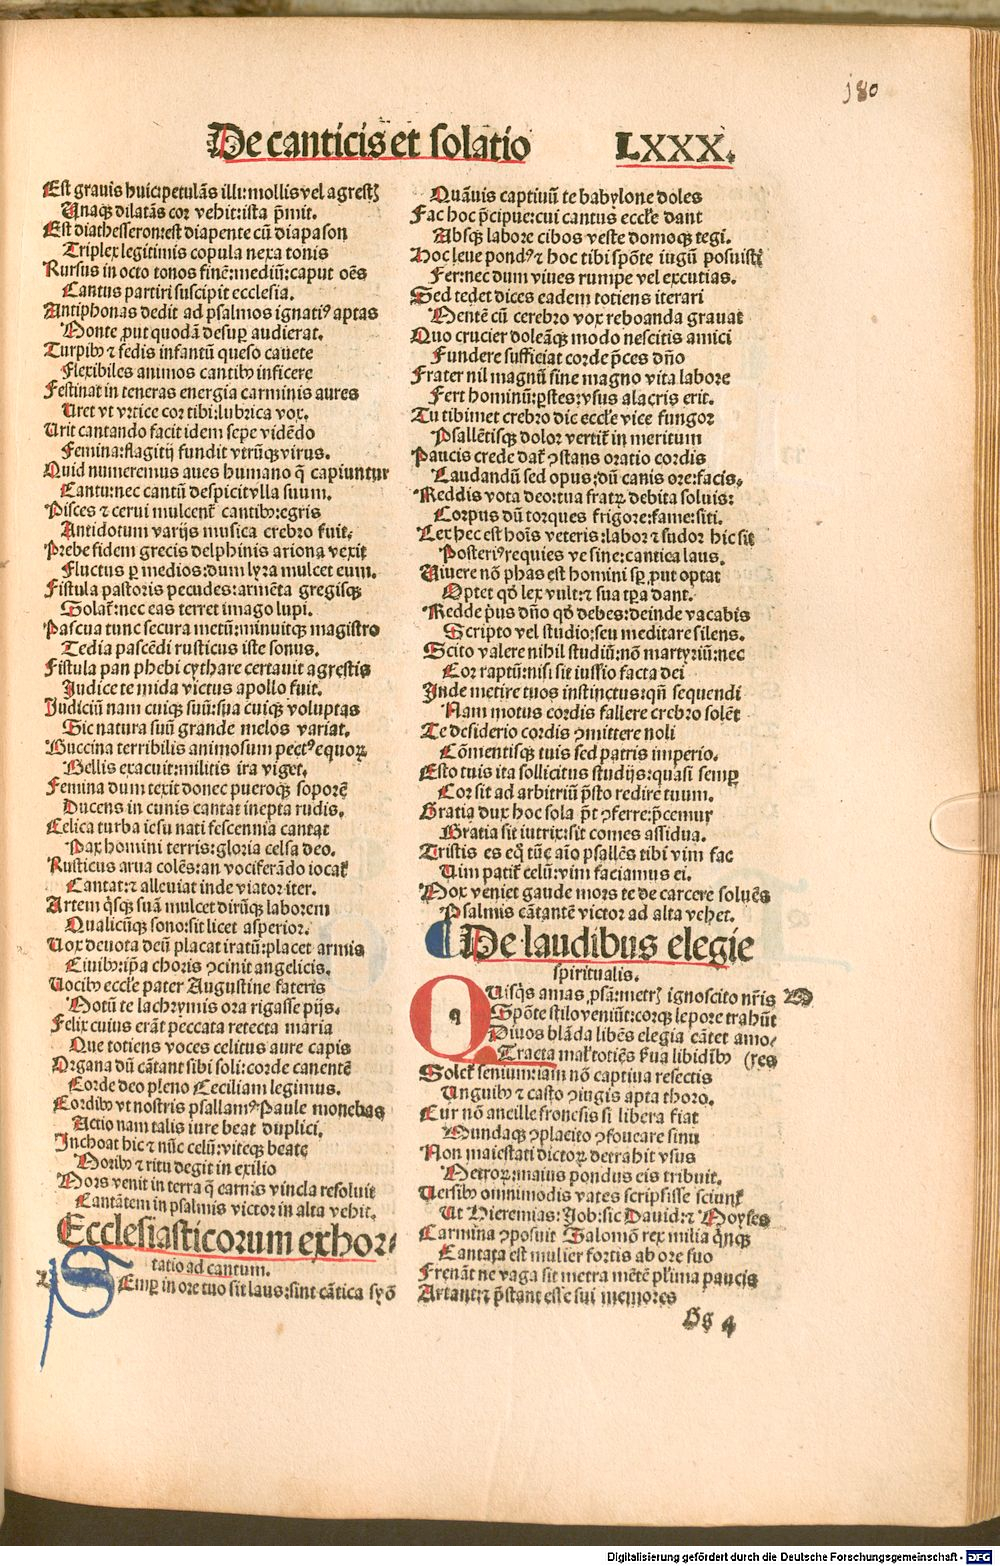 180
De canticis et solatio LXXX.
Est grauis huic: petulãs illi: mollis vel agrestꝭ
Unaqꝫ dilatãs cor vehit: ista p̃mit.
Est diathesseron: est diapente cũ diapason
Triplex legitimis copula nexa tonis
Rursus in octo tonos finẽ: mediũ: caput oẽs
Cantus partiri suscipit ecclesia.
Antiphonas dedit ad psalmos ignatiꝰ aptas
Monte ꝓut quodã desuꝑ audierat.
Turpibꝫ ⁊ fedis infantũ queso cauete
Flexibiles animos cantibꝫ inficere
Festinat in teneras energia carminis aures
Uret vt vrtice cor tibi: lubrica vox.
Urit cantando facit idem sepe vidẽdo
Femina: flagitij fundit vtrũqꝫ virus.
Quid numeremus aues humano q̃ capiuntur
Cantu: nec cantũ despicit vlla suum.
Pisces ⁊ cerui mulcent̃ cantibꝫ: egris
Antidotum varijs musica crebro fuit.
Prebe fidem grecis delphinis ariona vexit
Fluctus ꝑ medios: dum lyra mulcet eum.
Fistula pastoris pecudes: armẽta gregisqꝫ
Solat̃: nec eas terret imago lupi.
Pascua tunc secura metũ: minuitqꝫ magistro
Tedia pascẽdi rusticus iste sonus.
Fistula pan phebi cythare certauit agrestis
Judice te mida victus apollo fuit.
Judiciũ nam cuiqꝫ suũ: sua cuiqꝫ voluptas
Sic natura suũ grande melos variat.
Buccina terribilis animosum pectꝰ equoꝝ
Bellis exacuit: militis ira viget.
Femina dum texit donec pueroqꝫ soporẽ
Ducens in cunis cantat inepta rudis.
Celica turba iesu nati fescennia cantat
Pax homini terris: gloria celsa deo.
Rusticus arua colẽs: an vociferãdo iocat̃
Cantat: ⁊ alleuiat inde viator iter.
Artem q̃sqꝫ suã mulcet dirũqꝫ laborem
Qualicũqꝫ sono: sit licet asperior.
Uox deuota deũ placat iratũ: placet armis
Ciuibꝫ: ip̃a choris ꝯcinit angelicis.
Uocibꝫ eccl̃e pater Augustine fateris
Motũ te lachrymis ora rigasse pijs.
Felix cuius erãt peccata retecta maria
Que totiens voces celitus aure capis
Organa dũ cãtant sibi soli: corde canentẽ
Corde deo pleno Ceciliam legimus.
Cordibꝫ vt nostris psallamꝰ Paule monebas
Actio nam talis iure beat duplici.
Inchoat hic ⁊ nũc celũ: viteqꝫ beate
Moribꝫ ⁊ ritu degit in exilio
Mors venit in terra q̃ carnis vincla resoluit
Cantãtem in psalmis victor in alta vehit.
Ecclesiasticorum exhor-
tatio ad cantum.
SEmꝑ in ore tuo sit laus: sint cãtica syõ
Quãuis captiuũ te babylone doles
Fac hoc p̃cipue: cui cantus eccl̃e dant
Absqꝫ labore cibos veste domoqꝫ tegi.
Hoc leue pondꝰ ⁊ hoc tibi spõte iugũ posuisti
Fer: nec dum viues rumpe vel excutias.
Sed tedet dices eadem totiens iterari
Mentẽ cũ cerebro vox reboanda grauat
Quo crucier doleãqꝫ modo nescitis amici
Fundere sufficiat corde p̃ces dño
Frater nil magnũ sine magno vita labore
Fert hominũ: ꝑstes: vsus alacris erit.
Tu tibimet crebro dic eccl̃e vice fungor
Psallẽtisqꝫ dolor vertit̃ in meritum
Paucis crede dat̃ ꝯstans oratio cordis
Laudandũ sed opus: dũ canis ore: facis.
Reddis vota deo: tua fratꝝ debita soluis:
Corpus dũ torques frigore: fame: siti.
Lex hec est hoĩs veteris: labor ⁊ sudor hic sit
Posteriꝰ requies ve sine: cantica laus.
Uiuere nõ phas est homini sp̃ ꝓut optat
Optet qd̃ lex vult: ⁊ sua tp̃a dant.
Redde p̃us dño qd̃ debes: deinde vacabis
Scripto vel studio: seu meditare silens.
Scito valere nihil studiũ: nõ martyriũ: nec
Cor raptũ: nisi sit iussio facta dei
Inde metire tuos instinctus: qñ sequendi
Nam motus cordis fallere crebro solẽt
Te desiderio cordis ꝯmittere noli
Cõmentisqꝫ tuis sed patris imperio.
Esto tuis ita sollicitus studijs: quasi semꝑ
Cor sit ad arbitriũ p̃sto redire tuum.
Gratia dux hoc sola p̃t ꝯferre: p̃cemur
Gratia sit iutrix: sit comes assidua.
Tristis es eq̃ tũc aĩo psallẽs tibi vim fac
Uim patit̃ celũ: vim faciamus ei.
Mox veniet gaude mors te de carcere soluẽs
Psalmis cãtantẽ victor ad alta vehet.
De laudibus elegie
spiritualis.
QUisq̃s amas ꝓsã: metrꝭ ignoscito nr̃is
Spõte stilo veniũt: corqꝫ lepore trahũt
Diuos blãda libẽs elegia cãtet amo-
Tracta mal̃ totiẽs s̃ua libidĩbꝫ (res
Solet̃ senium: iam nõ captiua resectis
Unguibꝫ ⁊ casto ꝯiugis apta thoro.
Cur nõ ancille fronesis si libera fiat
Mundaqꝫ ꝯplacito ꝯfoueare sinu
Non maiestati dictoꝝ detrahit vsus
Metroꝝ: maius pondus eis tribuit.
Uersibꝫ omnimodis vates scripsisse sciunt̃
Ut Hieremias: Job: sic Dauid: ⁊ Moyses
Carmina ꝯposuit Salomõ rex milia q̃nqꝫ
Cantata est mulier fortis ab ore suo
Frenãt ne vaga sit metra mẽtẽ pl̃ima paucis
Artant: ⁊ p̃stant esse sui memores